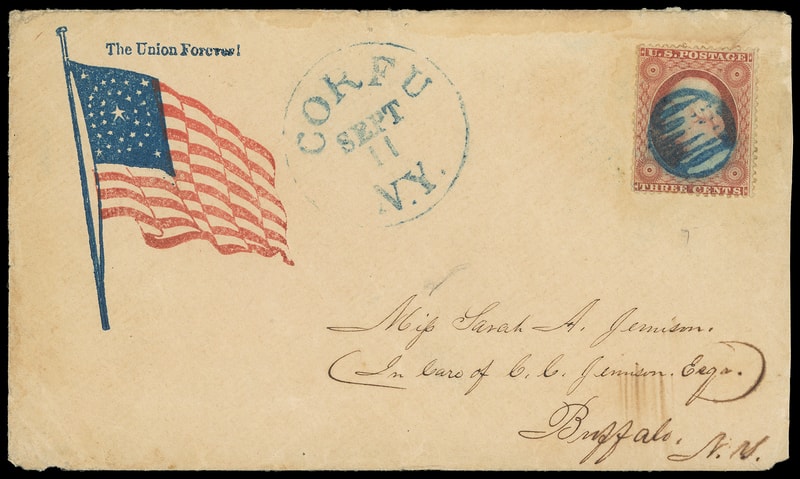 The Union Forever!
CORFU
SEPT
11
N.Y.
U.S. POSTAGE
THREE CENTS
7
Miss Sarah A. Jemison.
(In Care of C. C. Jemison. Esqr.)
Buffalo. N. Y.